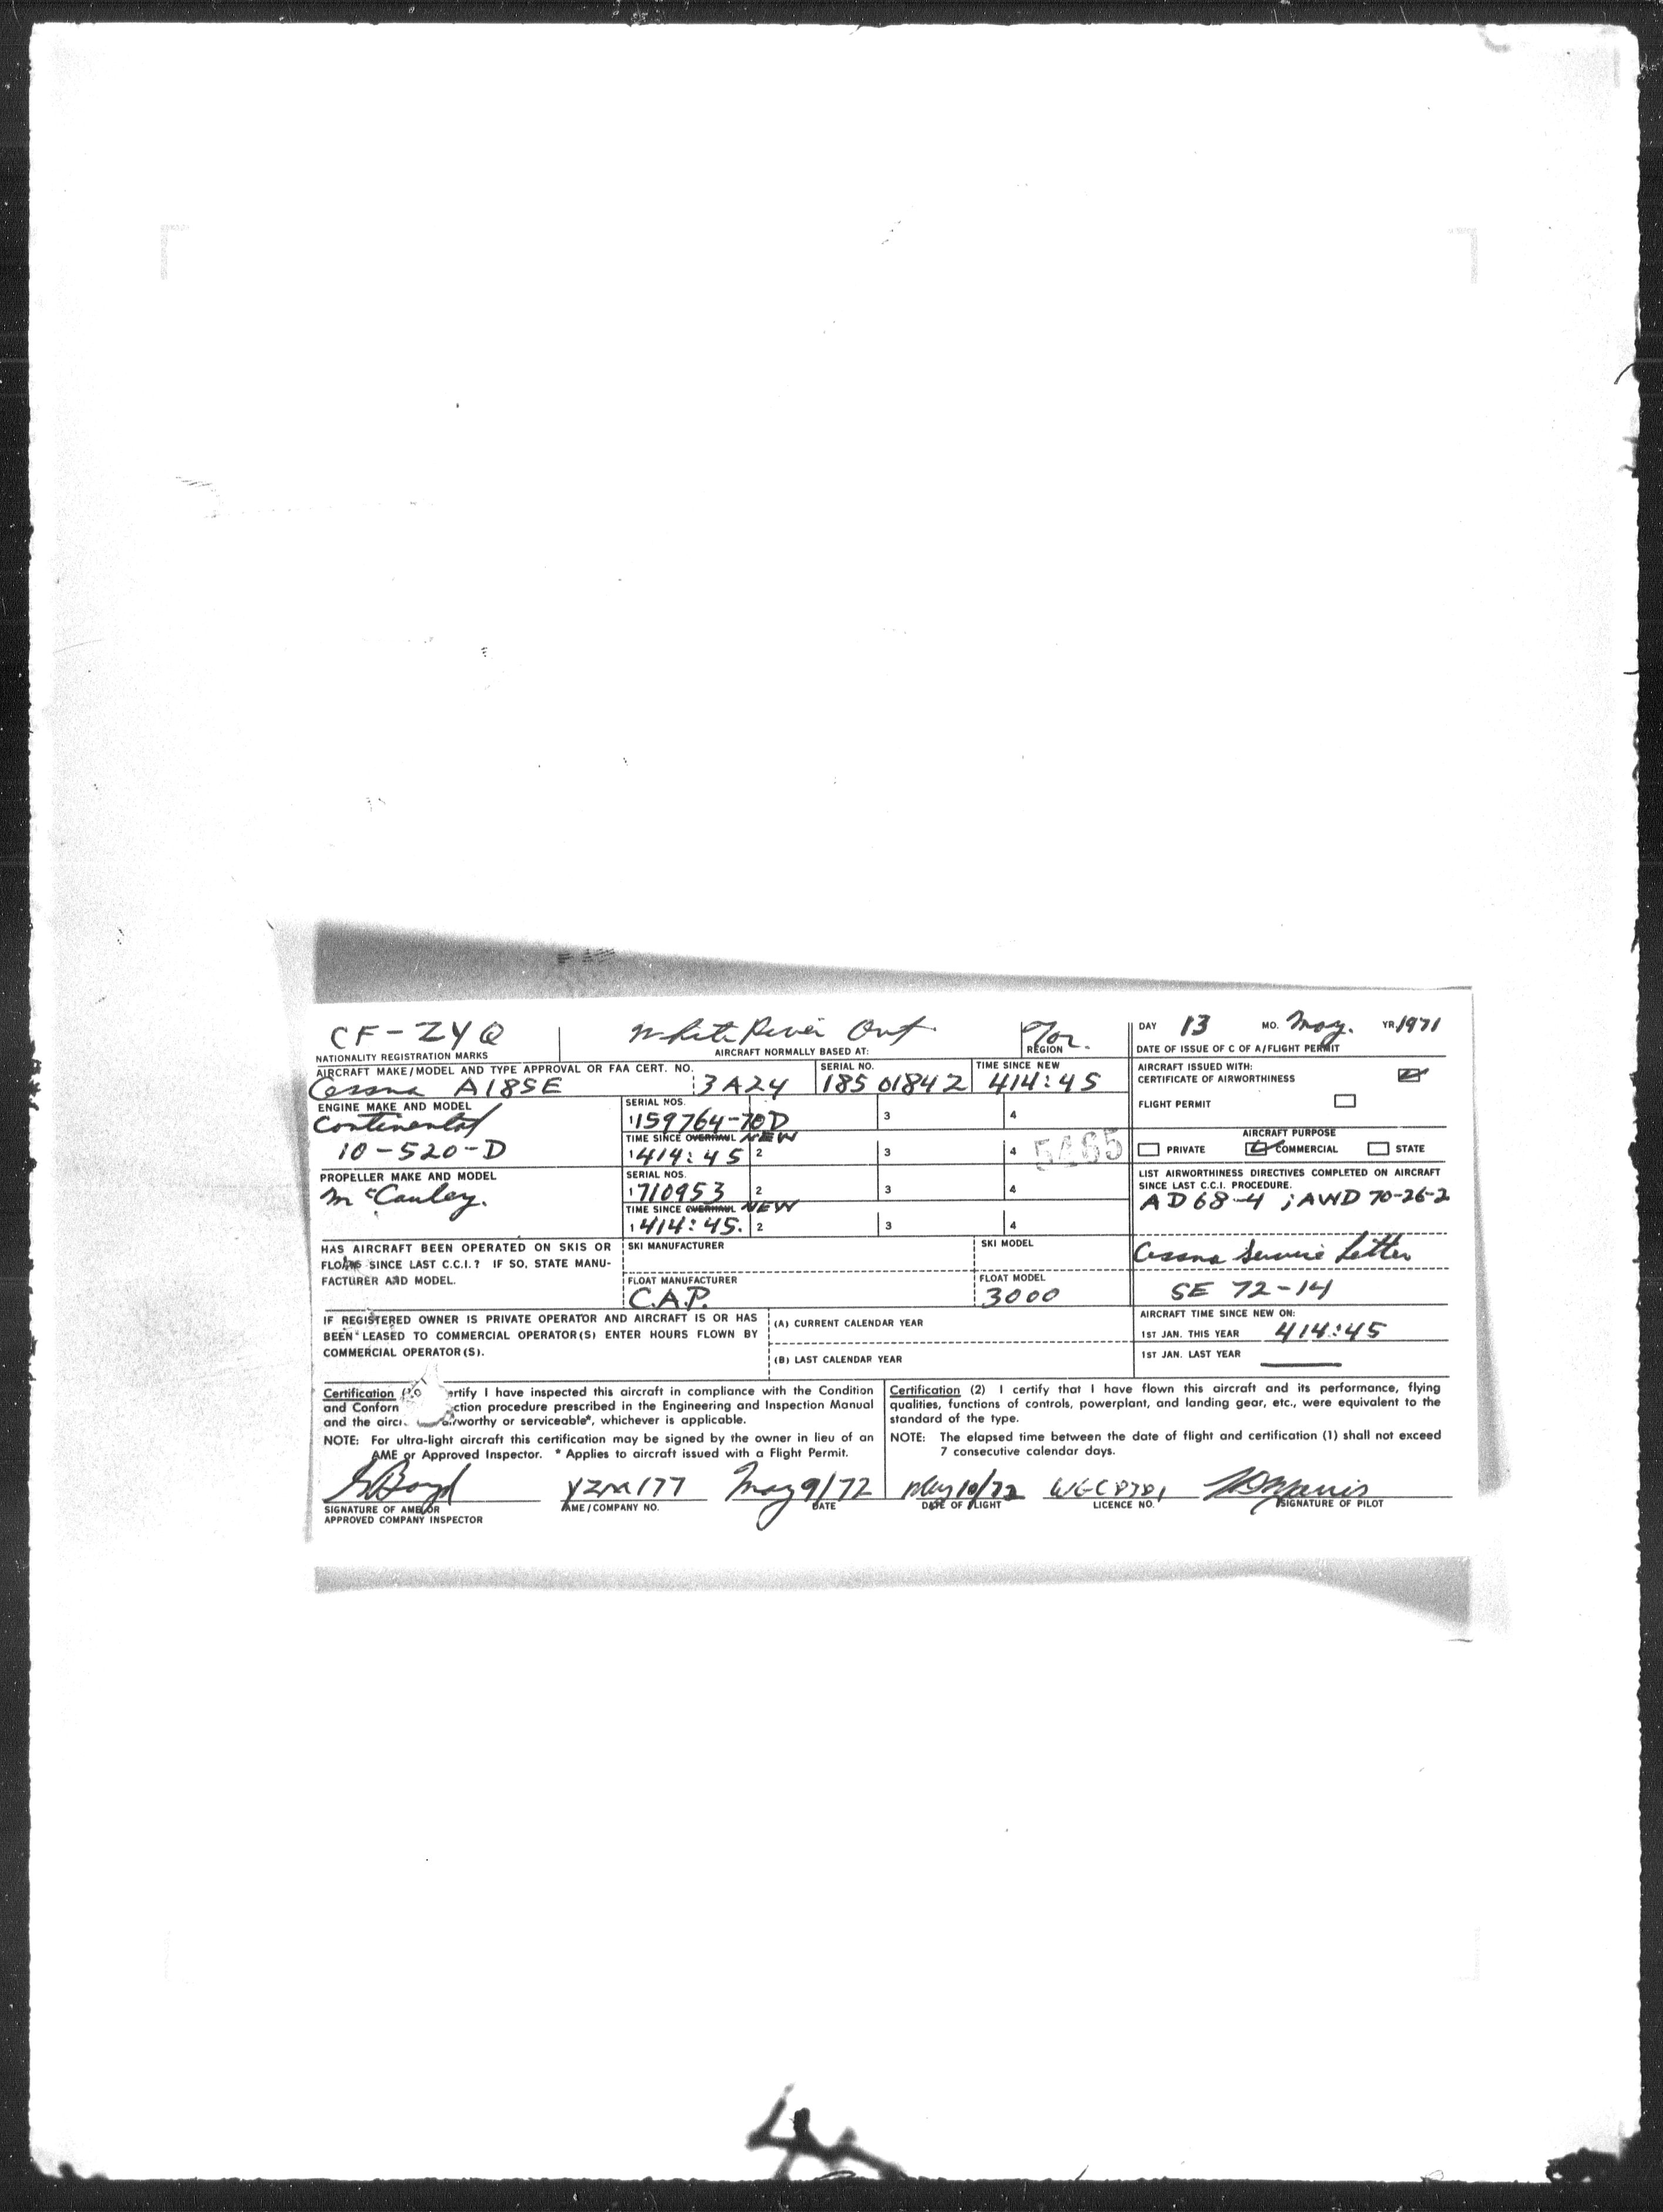 CF-ZYQ
White River Ont.
Tor.
DAY 13 MO. May. YR. 1971
NATIONALITY REGISTRATION MARKS
AIRCRAFT NORMALLY BASED AT:
REGION
DATE OF ISSUE OF C OF A/FLIGHT PERMIT
AIRCRAFT MAKE/MODEL AND TYPE APPROVAL OR FAA CERT. NO.
Cessna A185E 3A24
SERIAL NO.
185 01842
TIME SINCE NEW
414:45
AIRCRAFT ISSUED WITH:
CERTIFICATE OF AIRWORTHINESS
FLIGHT PERMIT
ENGINE MAKE AND MODEL
Continental
10-520-D
SERIAL NOS.
1 159764-70D 3 4
TIME SINCE OVERHAUL NEW
1 414:45 2 3 4 5465
AIRCRAFT PURPOSE
PRIVATE COMMERCIAL STATE
PROPELLER MAKE AND MODEL
McCauley.
SERIAL NOS.
1 710953 2 3 4
TIME SINCE OVERHAUL NEW
1 414:45. 2 3 4
LIST AIRWORTHINESS DIRECTIVES COMPLETED ON AIRCRAFT
SINCE LAST C.C.I. PROCEDURE.
AD 68-4 ; AWD 70-26-2
Cessna Service Letter
SE 72-14
HAS AIRCRAFT BEEN OPERATED ON SKIS OR
FLOATS SINCE LAST C.C.I.? IF SO, STATE MANU-
FACTURER AND MODEL.
SKI MANUFACTURER
SKI MODEL
FLOAT MANUFACTURER
C.A.P.
FLOAT MODEL
3000
IF REGISTERED OWNER IS PRIVATE OPERATOR AND AIRCRAFT IS OR HAS
BEEN LEASED TO COMMERCIAL OPERATOR(S) ENTER HOURS FLOWN BY
COMMERCIAL OPERATOR(S).
(A) CURRENT CALENDAR YEAR
(B) LAST CALENDAR YEAR
AIRCRAFT TIME SINCE NEW ON:
1ST JAN. THIS YEAR 414:45
1ST JAN. LAST YEAR
Certification ertify I have inspected this aircraft in compliance with the Condition
and Conforn ction procedure prescribed in the Engineering and Inspection Manual
and the airc worthy or serviceable*, whichever is applicable.
NOTE: For ultra-light aircraft this certification may be signed by the owner in lieu of an
AME or Approved Inspector. * Applies to aircraft issued with a Flight Permit.
Certification (2) I certify that I have flown this aircraft and its performance, flying
qualities, functions of controls, powerplant, and landing gear, etc., were equivalent to the
standard of the type.
NOTE: The elapsed time between the date of flight and certification (1) shall not exceed
7 consecutive calendar days.
Boyd YZM177 May 9/72 May 10/72
SIGNATURE OF AME OR
APPROVED COMPANY INSPECTOR
AME/COMPANY NO.
DATE
DATE OF FLIGHT
LICENCE NO.
SIGNATURE OF PILOT